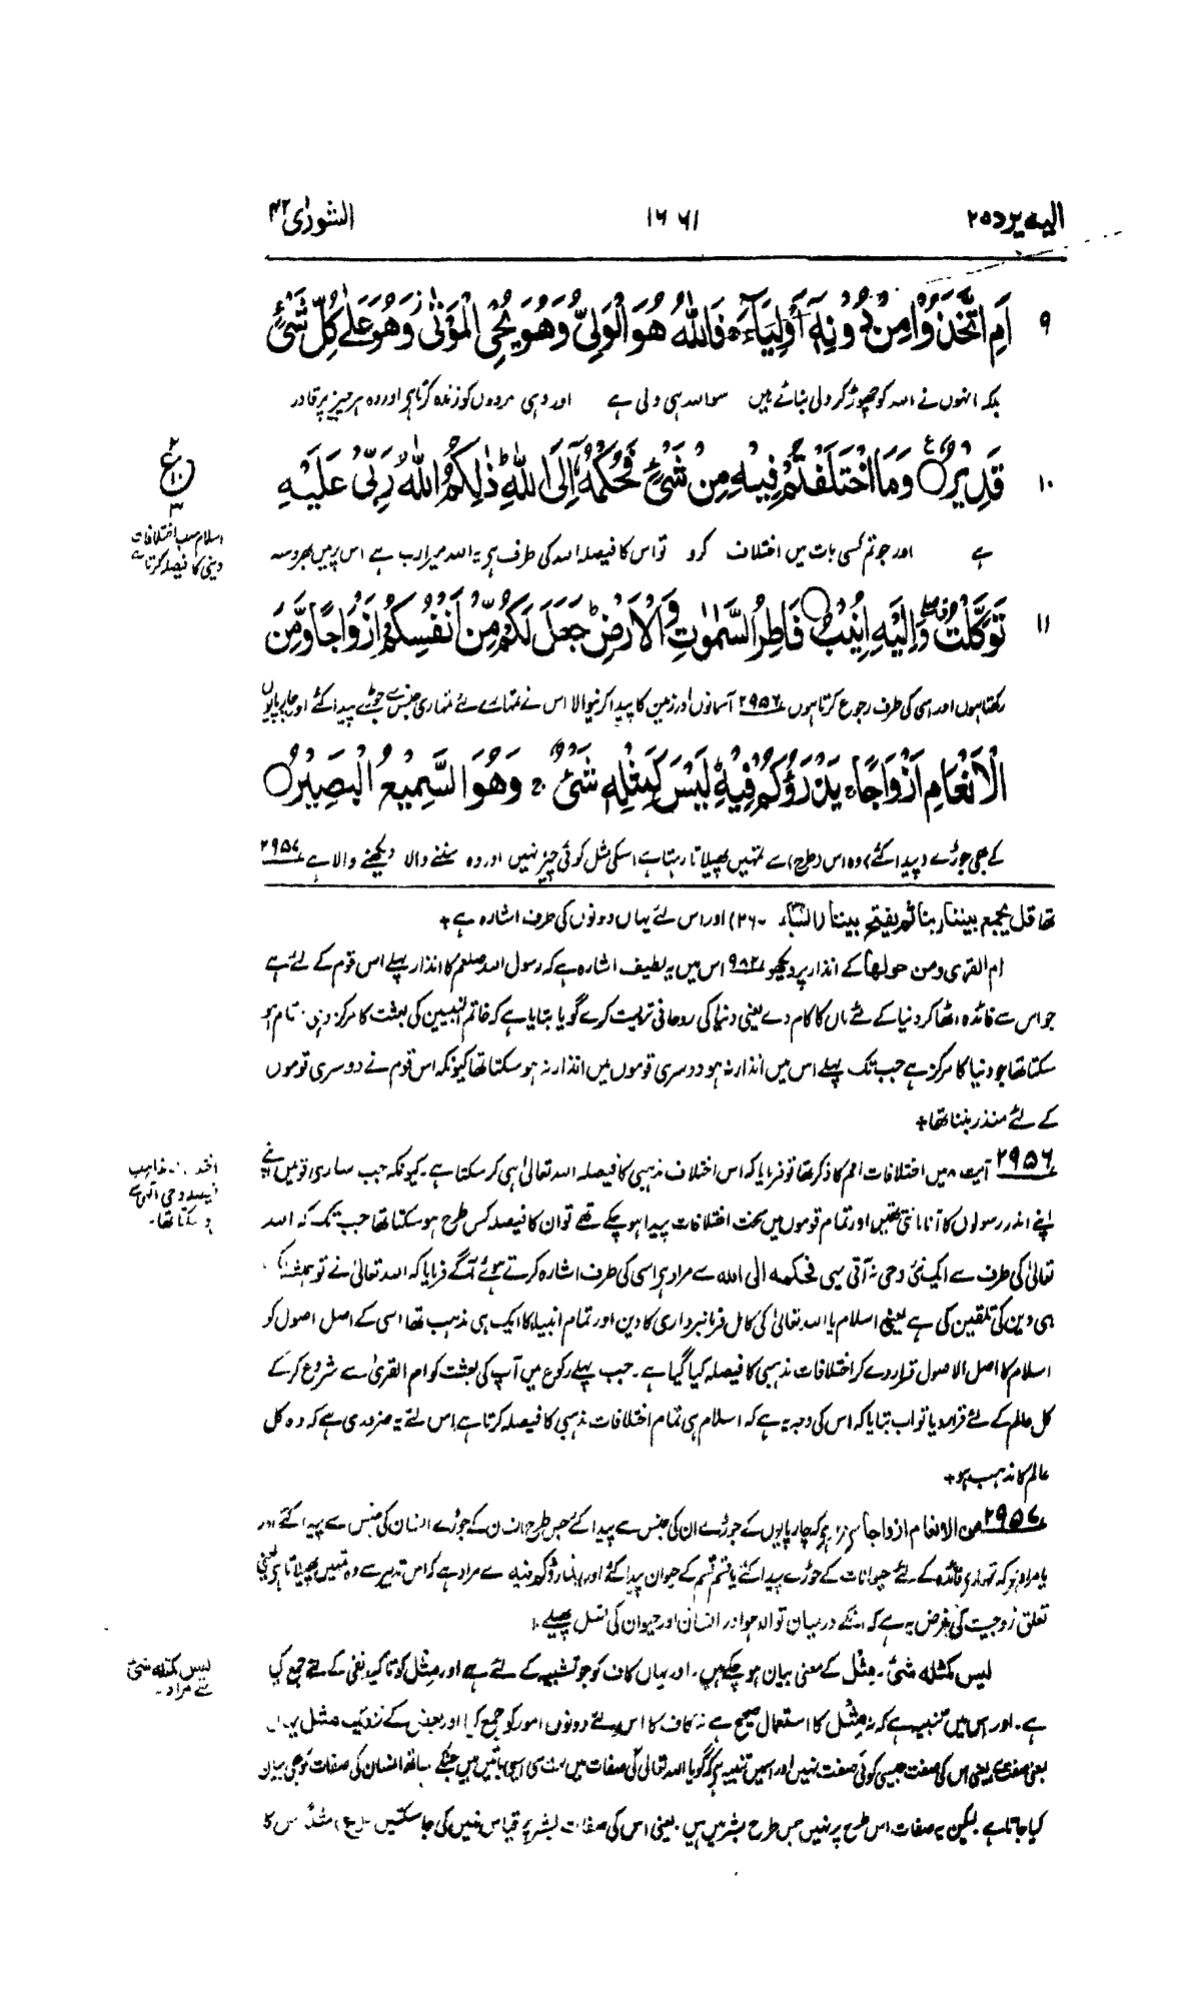 الیه یرد ۲۵
۱۶۶۱
الشورٰی ۴۲
۹ اَمِ اتَّخَذُوْا مِنْ دُوْنِهٖۤ اَوْلِیَآءَ ۚ فَاللّٰهُ هُوَ الْوَلِیُّ وَهُوَ یُحْیِ الْمَوْتٰی ؗ وَهُوَ عَلٰی كُلِّ شَیْءٍ
بلکہ انہوں نے اللہ کو چھوڑ کر ولی بنائے ہیں سو اللہ ہی ولی ہے اور وہی مردوں کو زندہ کرتا ہے اور وہ ہر چیز پر قادر
۱۰ قَدِیْرٌ ۝ وَمَا اخْتَلَفْتُمْ فِیْهِ مِنْ شَیْءٍ فَحُكْمُهٗۤ اِلَی اللّٰهِ ؕ ذٰلِكُمُ اللّٰهُ رَبِّیْ عَلَیْهِ
ہے اور جو تم کسی بات میں اختلاف کرو تو اس کا فیصلہ اللہ کی طرف ہے یہ اللہ میرا رب ہے اس پر میں بھروسہ
اسلام سب اختلافات
دینی کا فیصلہ کرتا ہے
۱۱ تَوَكَّلْتُ وَاِلَیْهِ اُنِیْبُ ۝ فَاطِرُ السَّمٰوٰتِ وَالْاَرْضِ ؕ جَعَلَ لَكُمْ مِّنْ اَنْفُسِكُمْ اَزْوَاجًا وَّمِنَ
رکھتا ہوں اور اسی کی طرف رجوع کرتا ہوں ۲۹۵۶ آسمانوں اور زمین کا پیدا کرنیوالا اس نے تمہارے لئے تمہاری جنس سے جوڑے پیدا کئے اور چارپایوں
الْاَنْعَامِ اَزْوَاجًا ۚ یَذْرَؤُكُمْ فِیْهِ ؕ لَیْسَ كَمِثْلِهٖ شَیْءٌ ۚ وَهُوَ السَّمِیْعُ الْبَصِیْرُ ۝
کے بھی جوڑے (پیدا کئے) وہ اس (طرح) سے تمہیں پھیلاتا رہتا ہے اسکی مثل کوئی چیز نہیں اور وہ سننے والا دیکھنے والا ہے ۲۹۵۷
تھا قل یجمع بیننا ربنا ثم یفتح بیننا (السبا۔ ۲۶) اور اس لئے یہاں دونوں کی طرف اشارہ ہے +
ام القریٰ ومن حولها کے انذار پر دیکھو ۹۸۲ اس میں یہ لطیف اشارہ ہے کہ رسول اللہ صلعم کا انذار پہلے اس قوم کے لئے ہے
جو اس سے فائدہ اٹھا کر دنیا کے لئے ماں کا کام دے یعنی دنیا کی روحانی تربیت کرے گویا بتایا ہے کہ خاتم النبیین کی بعثت کا مرکز وہیں قائم ہو
سکتا تھا جو دنیا کا مرکز ہے جب تک پہلے اس میں انذار نہ ہو دوسری قوموں میں انذار نہ ہو سکتا تھا کیونکہ اس قوم نے دوسری قوموں
کے لئے منذر بننا تھا +
۲۹۵۶ آیت میں اختلافات امم کا ذکر تھا تو فرمایا کہ اس اختلاف مذہبی کا فیصلہ اللہ تعالیٰ ہی کر سکتا ہے۔ کیونکہ جب ساری قومیں اپنے
اپنے اندر رسولوں کا آنا مانتی تھیں اور تمام قوموں میں سخت اختلافات پیدا ہو چکے تھے تو ان کا فیصلہ کس طرح ہو سکتا تھا جب تک کہ اللہ
مذاہب
فیصلہ وحی الٰہی سے
ہو سکتا تھا۔
تعالیٰ کی طرف سے ایک نئی وحی نہ آتی یہی فحکمه الی الله سے مراد ہے اسی کی طرف اشارہ کرتے ہوئے آگے فرمایا کہ اللہ تعالیٰ نے تو ہمیشہ ایک
ہی دین کی تلقین کی ہے یعنی اسلام یا اللہ تعالیٰ کی کامل فرمانبرداری کا دین اور تمام انبیاء کا ایک ہی مذہب تھا اسی کے اصل اصول کو
اسلام کا اصل الاصول قرار دے کر اختلافات مذہبی کا فیصلہ کیا گیا ہے۔ جب پہلے رکوع میں آپ کی بعثت کو ام القریٰ سے شروع کر کے
کل عالم کے لئے قرار دیا تو اب بتایا کہ اس کی وجہ یہ ہے کہ اسلام ہی تمام اختلافات مذہبی کا فیصلہ کرتا ہے اس لئے یہ ضروری ہے کہ وہ کل
عالم کا مذہب ہو +
۲۹۵۷ من الانعام ازواجا سے مراد ہے کہ چارپایوں کے جوڑے ان کی جنس سے پیدا کئے جس طرح انسان کے جوڑے انسان کی جنس سے پیدا کئے اور
یا مراد ہے کہ تمہارے فائدہ کے لئے حیوانات کے جوڑے پیدا کئے یا قسم قسم کے حیوان پیدا کئے اور یذرؤکم فیه سے مراد ہے کہ اس تدبیر سے وہ تمہیں پھیلاتا ہے یعنی
تعلق زوجیت کی غرض یہ ہے کہ انکے درمیان توالد ہو اور انسان اور حیوان کی نسل پھیلے۔
لیس کمثله شیٔ۔ مثل کے معنی بیان ہو چکے ہیں۔ اور یہاں کاف کو جو تشبیہ کے لئے ہے اور مثل کو تاکید نفی کے لئے جمع کیا
لیس کمثله شیٔ
سے مراد۔
ہے۔ اور اس میں تنبیہ ہے کہ نہ مثل کا استعمال صحیح ہے نہ کاف کا اس لئے دونوں امور کو جمع کیا اور بعض کے نزدیک مثل یہاں
بمعنی صفت ہے یعنی اس کی صفت جیسی کوئی صفت نہیں اور اسمیں تنبیہ ہے کہ گویا اللہ تعالیٰ کی صفات میں بہت سی ایسی باتیں ہیں جنکے ساتھ انسان کی صفات کو بھی بیان
کیا جاتا ہے لیکن یہ صفات اس طرح پر نہیں جس طرح بشر میں ہیں یعنی اس کی صفات بشر پر قیاس نہیں کی جا سکتیں